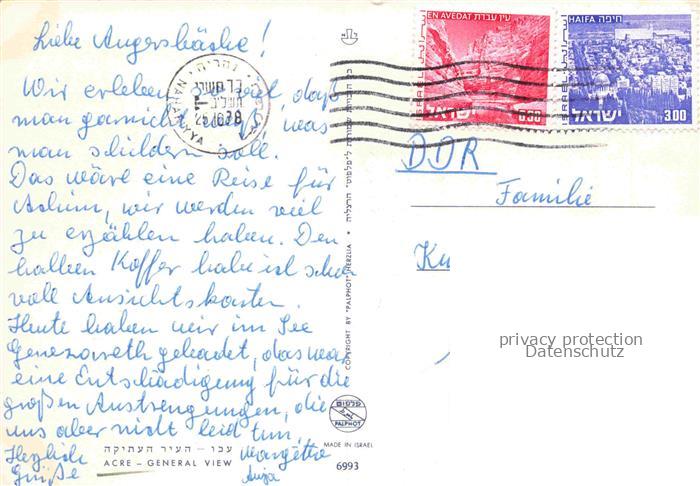 Liebe Angersbäche!
Wir erleben so viel, daß
man garnicht weiß, was
man schildern soll.
Das wäre eine Reise für
Achim, wir werden viel
zu erzählen haben. Den
halben Koffer habe ich schon
voll Ansichtskarten.
Heute haben wir im See
Genezareth gebadet, das war
eine Entschädigung für die
großen Anstrengungen, die
uns aber nicht leid tun.
Herzlich
Grüße
Margithe
Anja
עכו – העיר העתיקה
ACRE – GENERAL VIEW
COPYRIGHT BY "PALPHOT" HERZLIA
פלפוט
PALPHOT
MADE IN ISRAEL
6993
נהריה
NAHARIYYA
EN AVEDAT עין עבדת
ISRAEL
ישראל
0.30
HAIFA חיפה
ISRAEL
ישראל
3.00
DDR
Familie
Ku
privacy protection
Datenschutz